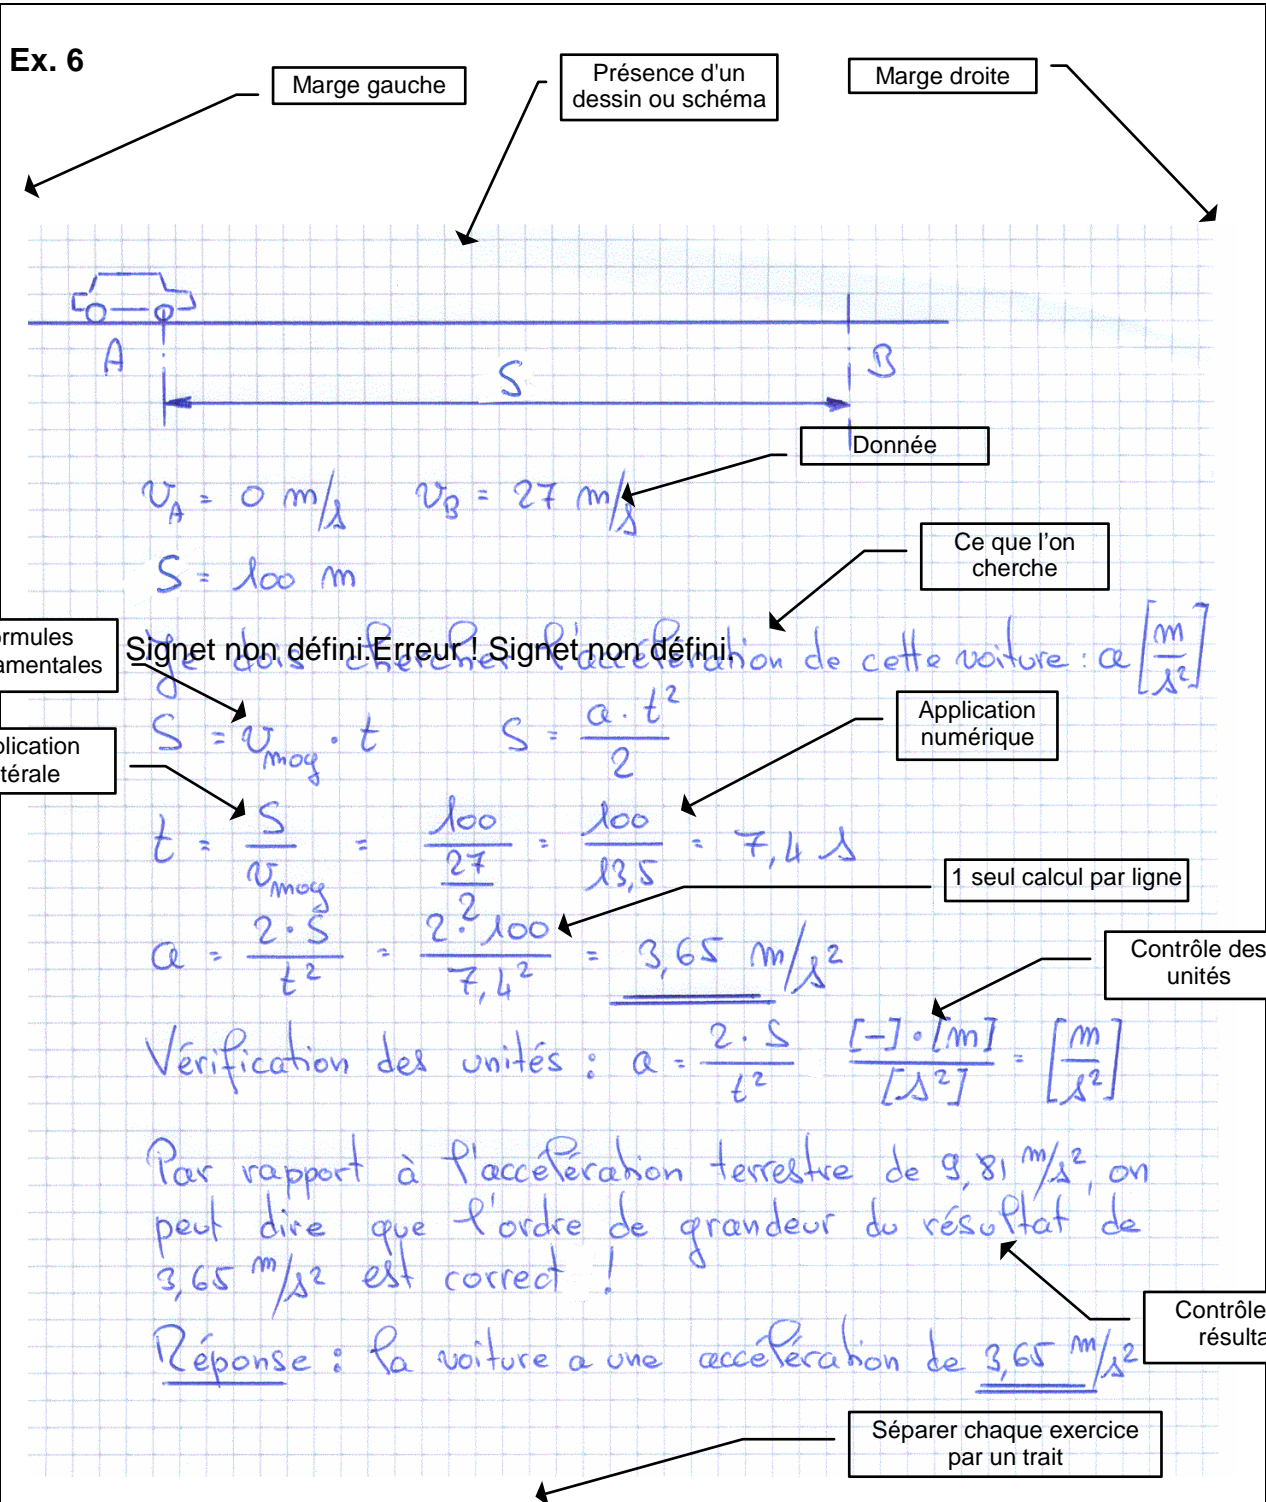 Ex. 6
Marge gauche
Présence d'un
dessin ou schéma
Marge droite
A
S
B
Donnée
v_A = 0 m/s v_B = 27 m/s
S = 100 m
Ce que l'on
cherche
ormules
amentales
Signet non défini.Erreur ! Signet non défini.
Je dois chercher l'accélération de cette voiture : a [m/s²]
S = v_moy · t S = a · t² / 2
Application
numérique
plication
térale
t = S / v_moy = 100 / (27/2) = 100 / 13,5 = 7,4 s
1 seul calcul par ligne
a = 2 · S / t² = 2 · 100 / 7,4² = 3,65 m/s²
Contrôle des
unités
Vérification des unités : a = 2 . S / t² [-] · [m] / [s²] = [m/s²]
Par rapport à l'accélération terrestre de 9,81 m/s², on
peut dire que l'ordre de grandeur du résultat de
3,65 m/s² est correct !
Contrôle
résulta
Réponse : la voiture a une accélération de 3,65 m/s²
Séparer chaque exercice
par un trait